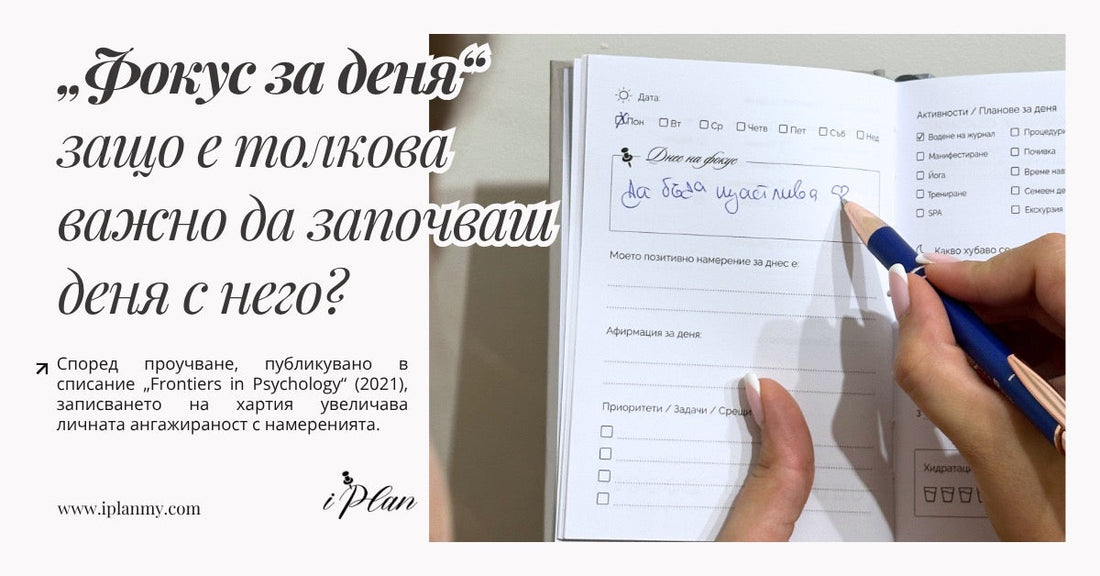 „Фокус за деня“
защо е толкова
важно да започваш
деня с него?
Според проучване, публикувано в
списание „Frontiers in Psychology“ (2021),
записването на хартия увеличава
личната ангажираност с намеренията.
www.iplanmy.com
i Plan
Дата:
Пон Вт Ср Четв Пет Съб Нед
Днес на фокус
Да бъда щастлива
Моето позитивно намерение за днес е:
Афирмация за деня:
Приоритети / Задачи / Срещи
Активности / Планове за деня
Водене на журнал
Манифестиране Почивка
Йога
Трениране
SPA Екскурзия
Какво хубаво